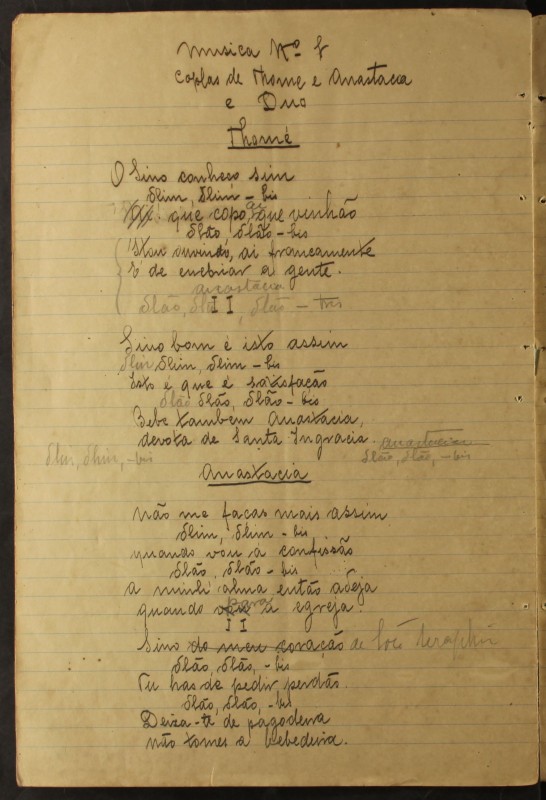 Musica Nº
Coplas de Thomé e Anastacia
e Duo
Thomé
O Sino conheço sim
Dlim, Dlim - bis
que copo, ai que vinhão
Dlão, Dlão - bis
'Stou ouvindo, ai francamente
É de enebriar a gente.
anastacia
Dlão, Dlão, Dlão - tres
II
Sino bom é isto assim
Dlim Dlim, Dlim - bis
Isto é que é satisfação
Dlão Dlão, Dlão - bis
Bebe tambem Anastacia,
devota de Santa Ingracia. anastacia
Dlim, Dlim, - bis Dlão, Dlão, - bis
Anastacia
não me faças mais assim
Dlim, Dlim - bis
quando vou á confissão
Dlão, Dlão - bis
a minh' alma então adeja
quando vou para a egreja.
II
Sino do meu coração de
Dlão, Dlão, - bis
Tu has de pedir perdão.
Dlão, Dlão, - bis
Deixa-te de pagodeira
não tomes a bebedeira.